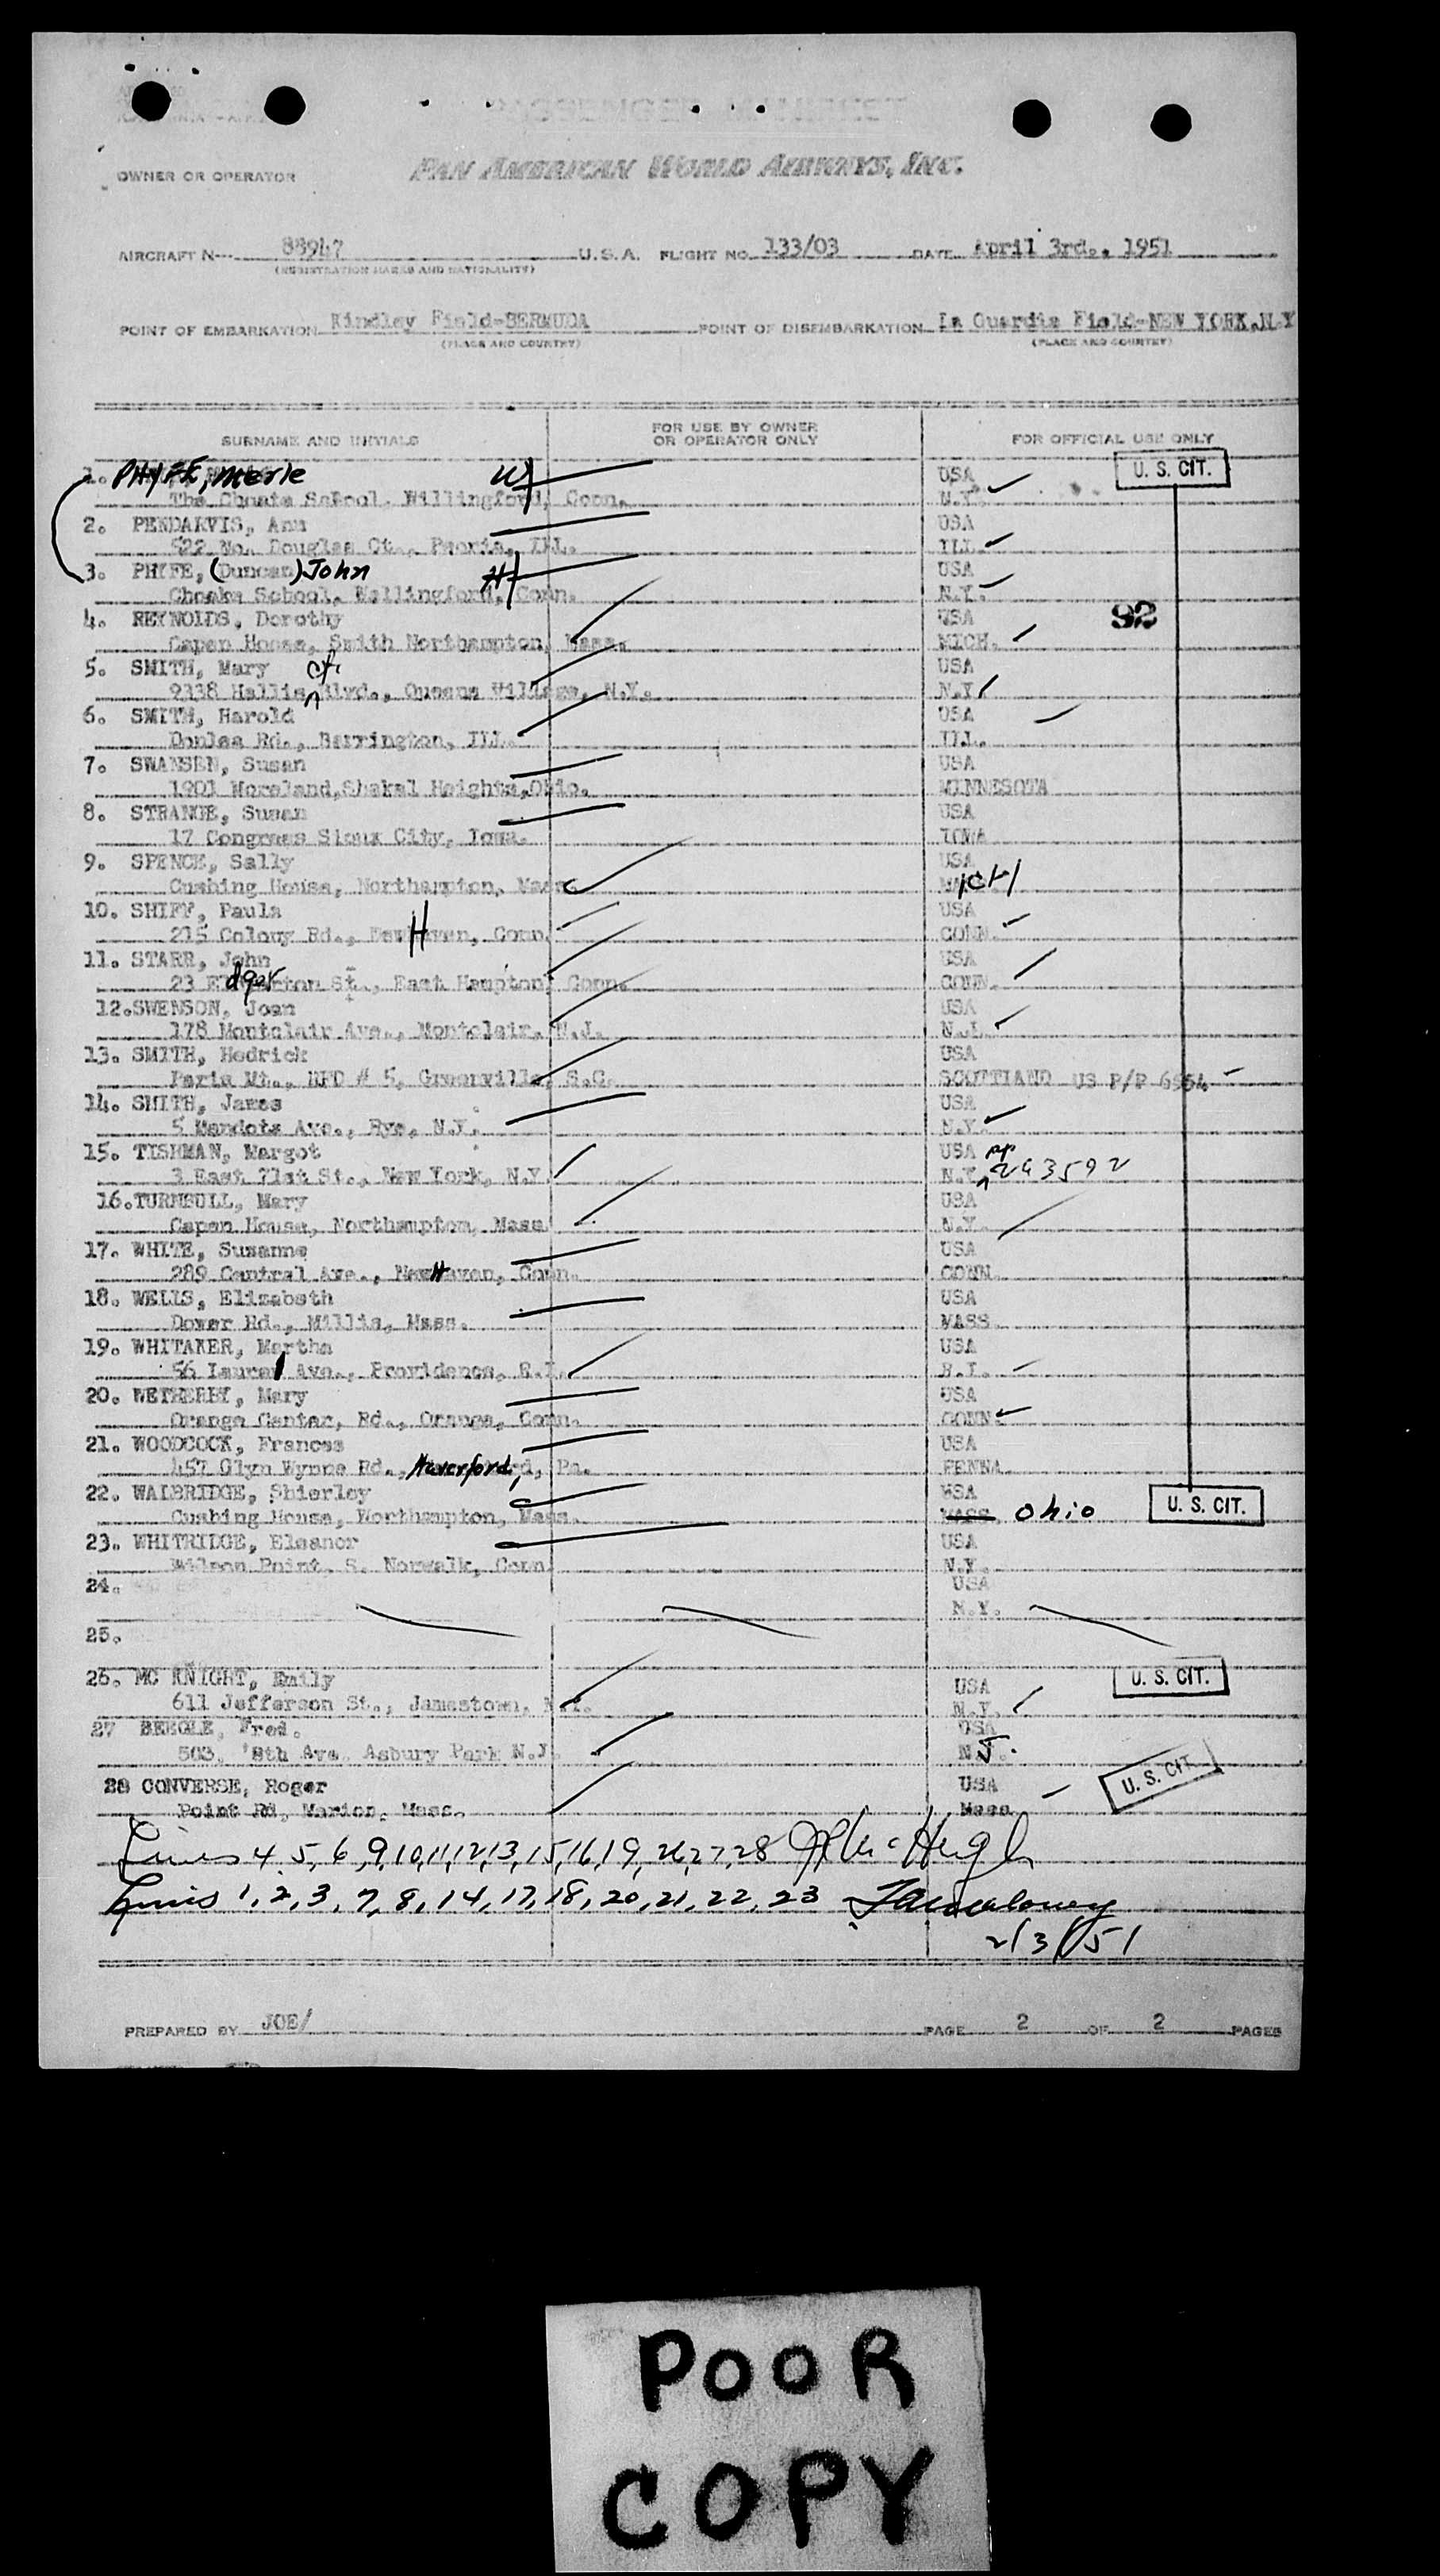 PASSENGER MANIFEST
OWNER OR OPERATOR PAN AMERICAN WORLD AIRWAYS, INC.
AIRCRAFT N--- 88947 U.S.A. FLIGHT NO. 133/03 DATE April 3rd., 1951
(REGISTRATION MARKS AND NATIONALITY)
POINT OF EMBARKATION Kindley Field-BERMUDA POINT OF DISEMBARKATION La Guardia Field-NEW YORK,N.Y
(PLACE AND COUNTRY) (PLACE AND COUNTRY)
SURNAME AND INITIALS FOR USE BY OWNER OR OPERATOR ONLY FOR OFFICIAL USE ONLY
1. PHYFE, Merle W USA U. S. CIT.
The Choate School. Willingford, Conn. N.Y.
2. PENDARVIS, Ann USA
522 No. Douglas Ct., Peoria, ILL. ILL.
3. PHYFE, (Duncan) John H USA
Choake School, Wallingford, Conn. N.Y.
4. REYNOLDS, Dorothy USA 92
Capen House, Smith Northampton, Mass. MICH.
5. SMITH, Mary USA
9338 Hallis ct. Blvd., Queens Village, N.Y. N.Y.
6. SMITH, Harold USA
Donlea Rd., Barrington, ILL. ILL.
7. SWANSEN, Susan USA
1901 Moreland,Shakal Heights,Ohio. MINNESOTA
8. STRANGE, Susan USA
17 Congress Sioux City, Iowa. IOWA
9. SPENCE, Sally USA
Cushing House, Northampton, Mass.
10. SHIFF, Paula USA
215 Colony Rd., New Haven, Conn. CONN.
11. STARR, John USA
23 Edgerton St., East Hampton, Conn. CONN.
12.SWENSON, Joan USA
178 Montclair Ave., Montclair, N.J. N.J.
13. SMITH, Hedrick USA
Paris Mt., RFD # 5, Greenville, S.C. SCOTTLAND US P/P 6954
14. SMITH, James USA
5 Mendota Ave., Rye, N.Y. N.Y.
15. TISHMAN, Margot USA PP
3 East 71st St., New York, N.Y. N.Y. 293592
16.TURNBULL, Mary USA
Capen House, Northampton, Mass N.Y.
17. WHITE, Susanne USA
289 Central Ave., New Haven, Conn. CONN.
18. WELLS, Elizabeth USA
Dover Rd., Millis, Mass. MASS.
19. WHITAKER, Martha USA
56 Laurel Ave., Providence, R.I. R.I.
20. WETHERBY, Mary USA
Orange Center, Rd., Orange, Conn. CONN.
21. WOODCOCK, Frances USA
457 Glyn Wynne Rd., Haverford, Pa. PENNA.
22. WALBRIDGE, Shierley USA
Cushing House, Northampton, Mass. MASS. Ohio U. S. CIT.
23. WHITRIDGE, Eleanor USA
Wilson Point, S. Norwalk, Conn. N.Y.
24. USA
N.Y.
25.
26. MC KNIGHT, Emily USA U. S. CIT.
611 Jefferson St., Jamestown, N.Y. N.Y.
27 BEHOLE, Fred. USA
503, '8th Ave. Asbury Park N.J. N.J.
28 CONVERSE, Roger USA U. S. CIT
Point Rd, Marion, Mass. Mass
Lines 4, 5, 6, 9, 10, 11, 12, 13, 15, 16, 19, 26, 27, 28
Lines 1, 2, 3, 7, 8, 14, 17, 18, 20, 21, 22, 23
2/3/51
PREPARED BY JOE/ PAGE 2 OF 2 PAGES
POOR
COPY